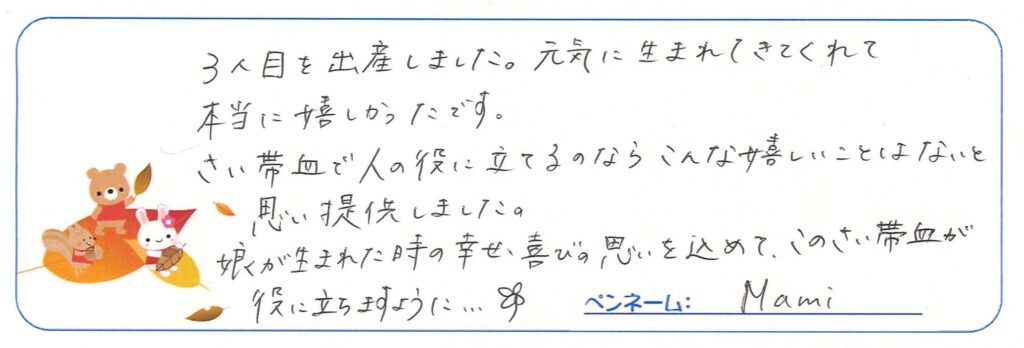 3人目を出産しました。元気に生まれてきてくれて
本当に嬉しかったです。
さい帯血で人の役に立てるのなら こんな嬉しいことはないと
思い提供しました。
娘が生まれた時の幸せ、喜びの思いを込めて、このさい帯血が
役に立ちますように…
ペンネーム: Mami